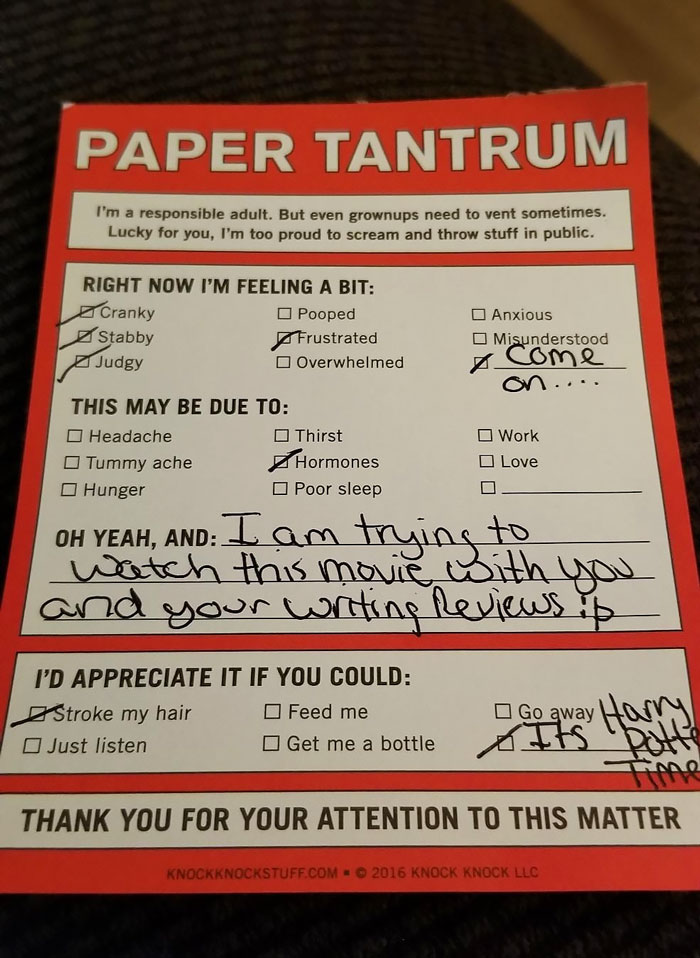 PAPER TANTRUM
I'm a responsible adult. But even grownups need to vent sometimes.
Lucky for you, I'm too proud to scream and throw stuff in public.
RIGHT NOW I'M FEELING A BIT:
Cranky Pooped Anxious
Stabby Frustrated Misunderstood
Judgy Overwhelmed Come
on....
THIS MAY BE DUE TO:
Headache Thirst Work
Tummy ache Hormones Love
Hunger Poor sleep
OH YEAH, AND: I am trying to
watch this movie with you
and your writing Reviews :p
I'D APPRECIATE IT IF YOU COULD:
Stroke my hair Feed me Go away Harry
Just listen Get me a bottle Its Potte
Time
THANK YOU FOR YOUR ATTENTION TO THIS MATTER
KNOCKKNOCKSTUFF.COM ▪ © 2016 KNOCK KNOCK LLC